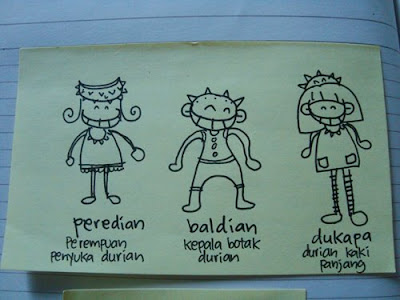 peredian
Perempuan
Penyuka durian
baldian
kepala botak
durian
dukapa
durian kaki
panjang